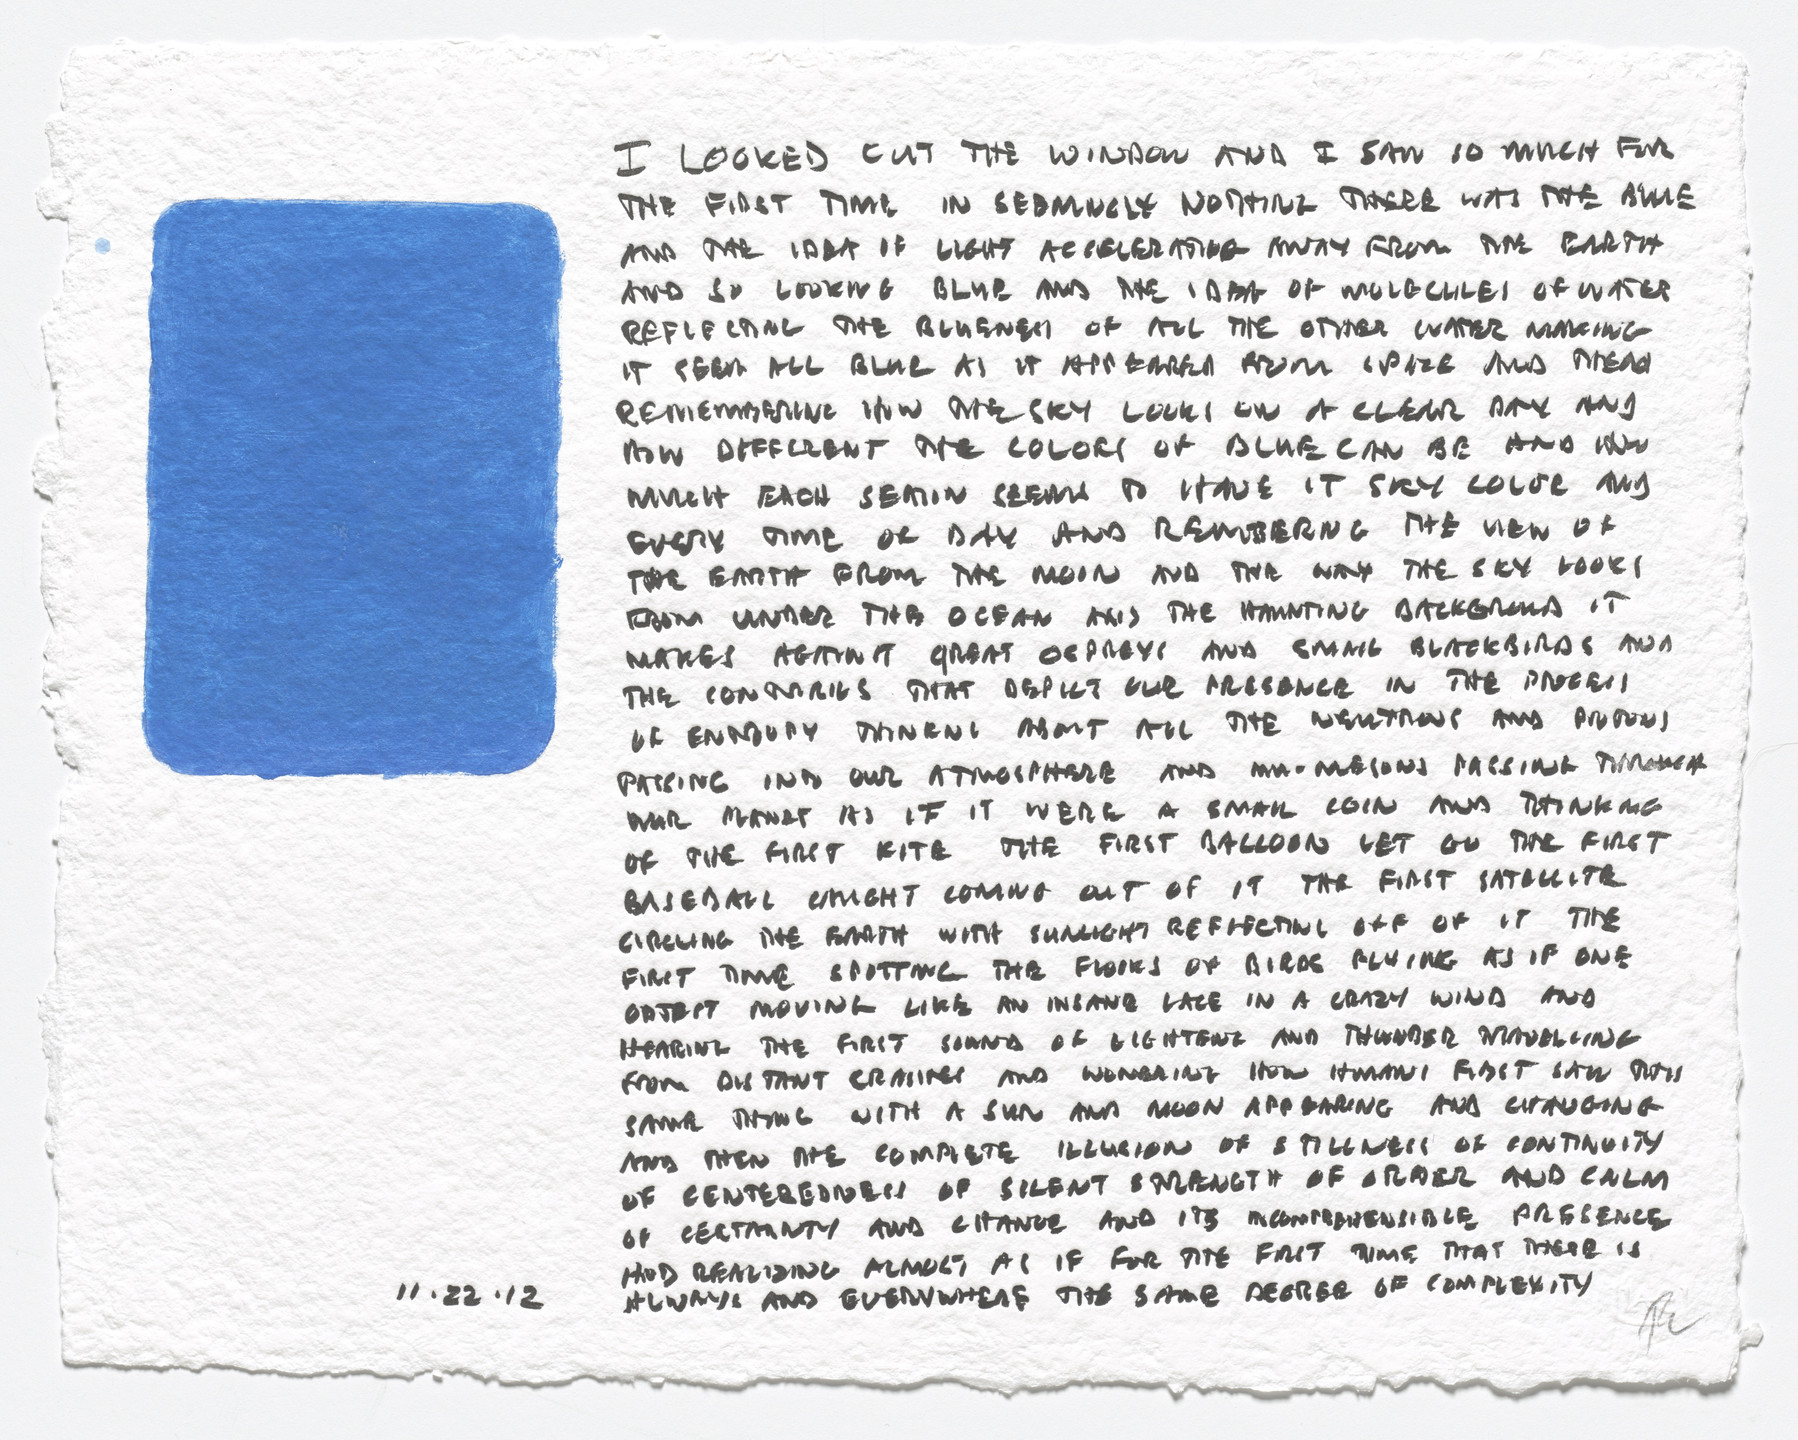 I LOOKED OUT THE WINDOW AND I SAW SO MUCH FOR
THE FIRST TIME IN SEEMINGLY NOTHING THERE WAS THE BLUE
AND THE IDEA OF LIGHT ACCELERATING AWAY FROM THE EARTH
AND SO LOOKING BLUE AND THE IDEA OF MOLECULES OF WATER
REFLECTING THE BLUENESS OF ALL THE OTHER WATER MAKING
IT SEEM ALL BLUE AS IT APPEARED FROM SPACE AND THEN
REMEMBERING HOW THE SKY LOOKS ON A CLEAR DAY AND
HOW DIFFERENT THE COLORS OF BLUE CAN BE AND HOW
MUCH EACH SEASON SEEMS TO HAVE IT SKY COLOR AND
EVERY TIME OF DAY AND REMEMBERING THE VIEW OF
THE EARTH FROM THE MOON AND THE WAY THE SKY LOOKS
FROM UNDER THE OCEAN AND THE HAUNTING BACKGROUND IT
MAKES AGAINST GREAT OSPREYS AND SMALL BLACKBIRDS AND
THE CONTRAILS THAT DEPICT OUR PRESENCE IN THE PROCESS
OF ENTROPY THINKING ABOUT ALL THE NEUTRONS AND PROTONS
PASSING INTO OUR ATMOSPHERE AND MU-MESONS PASSING THROUGH
OUR PLANET AS IF IT WERE A SMALL COIN AND THINKING
OF THE FIRST KITE THE FIRST BALLOON LET GO THE FIRST
BASEBALL CAUGHT COMING OUT OF IT THE FIRST SATELLITE
CIRCLING THE EARTH WITH SUNLIGHT REFLECTING OFF OF IT THE
FIRST TIME SPOTTING THE FLOCKS OF BIRDS FLYING AS IF ONE
OBJECT MOVING LIKE AN INSANE LACE IN A CRAZY WIND AND
HEARING THE FIRST SOUND OF LIGHTENG AND THUNDER TRAVELLING
FROM DISTANT CRASHES AND WONDERING HOW HUMANS FIRST SAW THIS
SAME THING WITH A SUN AND MOON APPEARING AND CHANGING
AND THEN THE COMPLETE ILLUSION OF STILLNESS OF CONTINUITY
OF CENTEREDNESS OF SILENT STRENGTH OF ORDER AND CALM
OF CERTAINTY AND CHANCE AND ITS INCOMPREHENSIBLE PRESENCE
AND REALIZING ALMOST AS IF FOR THE FIRST TIME THAT THERE IS
ALWAYS AND EVERYWHERE THE SAME DEGREE OF COMPLEXITY
11.22.12